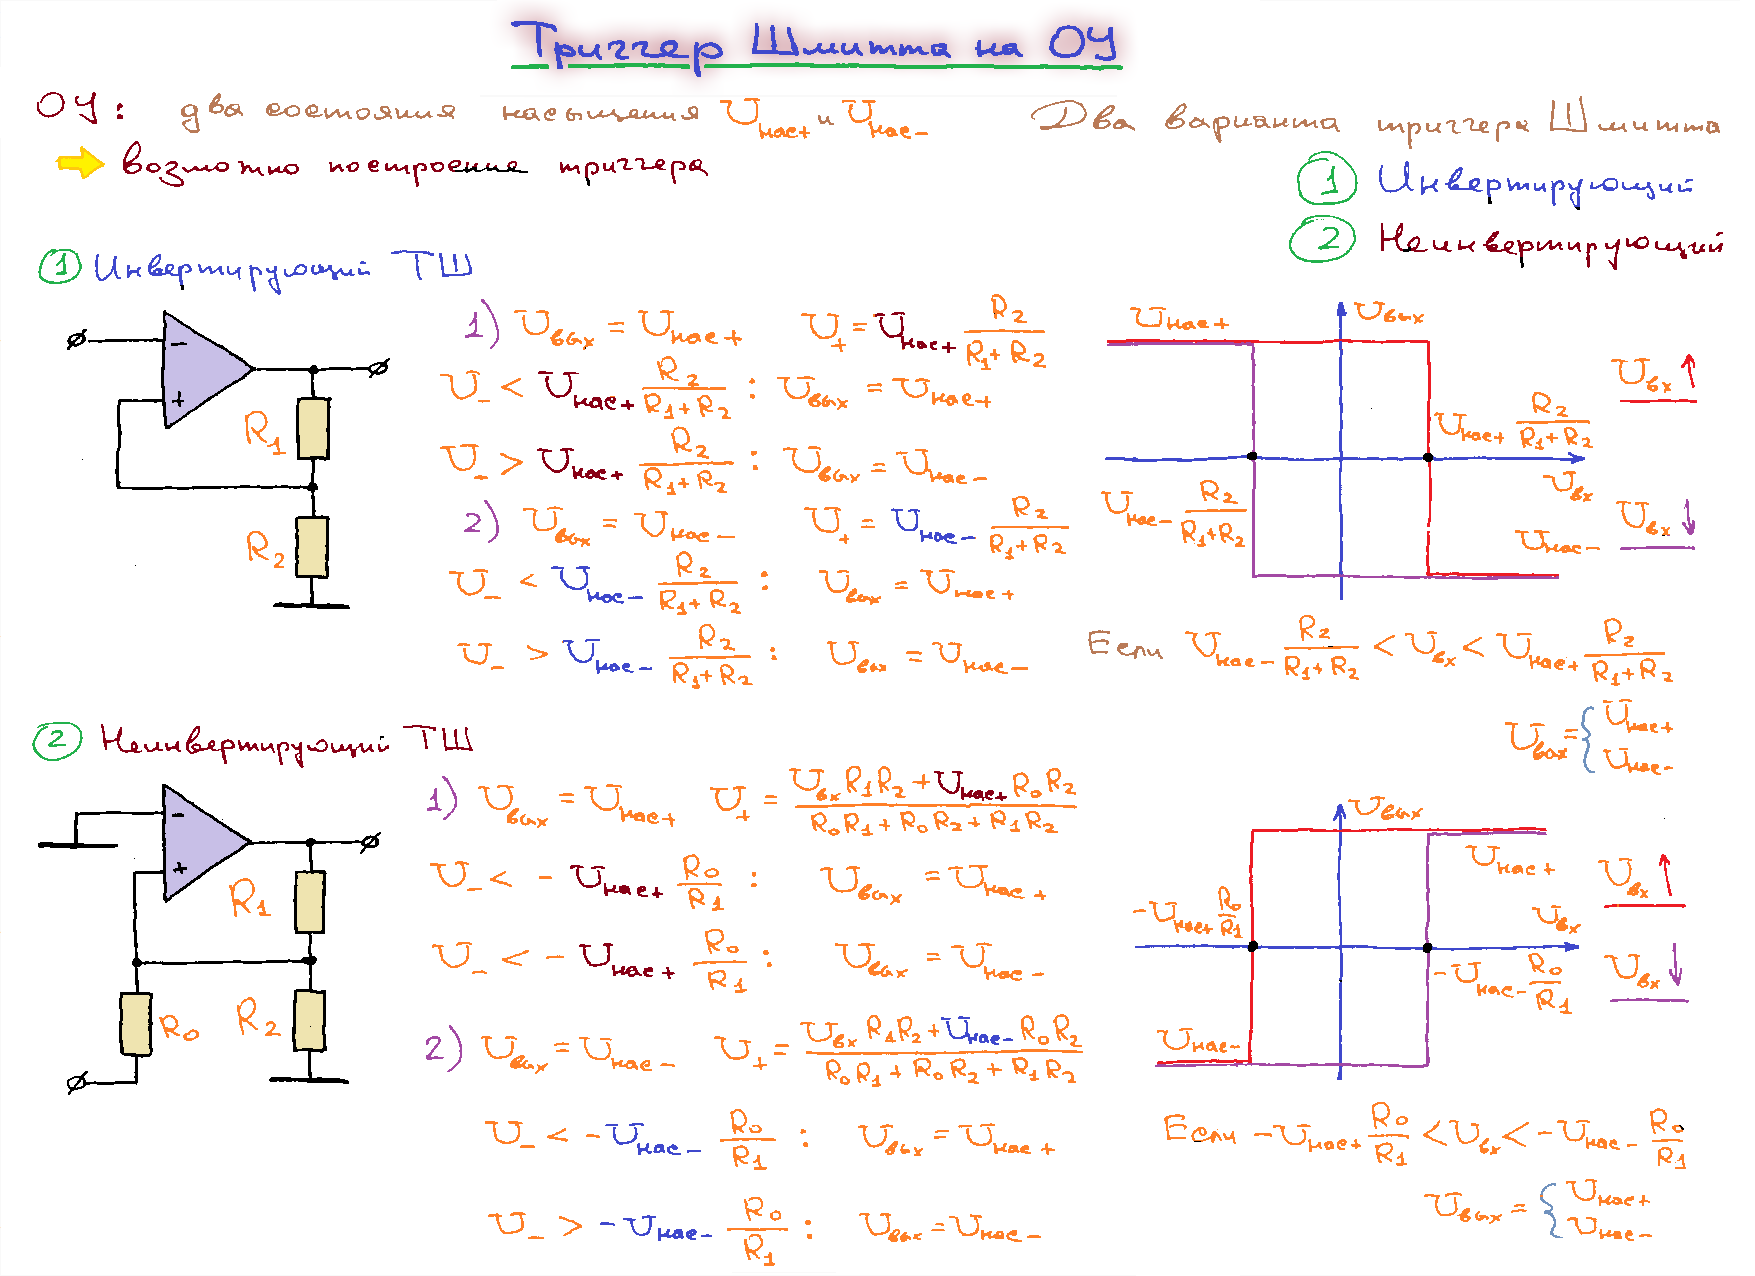 Триггер Шмитта на ОУ
ОУ: два состояния насыщения Uнас+ и Uнас−
⇒ возможно построение триггера
Два варианта триггера Шмитта
1 Инвертирующий
2 Неинвертирующий
1 Инвертирующий ТШ
−
+
R1
R2
1) Uвых = Uнас+ U+ = Uнас+ R2/(R1+R2)
U− < Uнас+ R2/(R1+R2) : Uвых = Uнас+
U− > Uнас+ R2/(R1+R2) : Uвых = Uнас−
2) Uвых = Uнас− U+ = Uнас− R2/(R1+R2)
U− < Uнас− R2/(R1+R2) : Uвых = Uнас+
U− > Uнас− R2/(R1+R2) : Uвых = Uнас−
Uнас+
Uвых
Uвх ↑
Uнас+ R2/(R1+R2)
Uвх
Uнас− R2/(R1+R2)
Uвх ↓
Uнас−
Если Uнас− R2/(R1+R2) < Uвх < Uнас+ R2/(R1+R2)
Uвых = { Uнас+
Uнас−
2 Неинвертирующий ТШ
−
+
R1
R0
R2
1) Uвых = Uнас+ U+ = (Uвх R1R2 + Uнас+ R0R2)/(R0R1 + R0R2 + R1R2)
U− < − Uнас+ R0/R1 : Uвых = Uнас+
U− < − Uнас+ R0/R1 : Uвых = Uнас−
2) Uвых = Uнас− U+ = (Uвх R1R2 + Uнас− R0R2)/(R0R1 + R0R2 + R1R2)
U− < − Uнас− R0/R1 : Uвых = Uнас+
U− > − Uнас− R0/R1 : Uвых = Uнас−
Uвых
Uнас+
Uвх ↑
−Uнас+ R0/R1
Uвх
−Uнас− R0/R1
Uвх ↓
Uнас−
Если −Uнас+ R0/R1 < Uвх < −Uнас− R0/R1
Uвых = { Uнас+
Uнас−